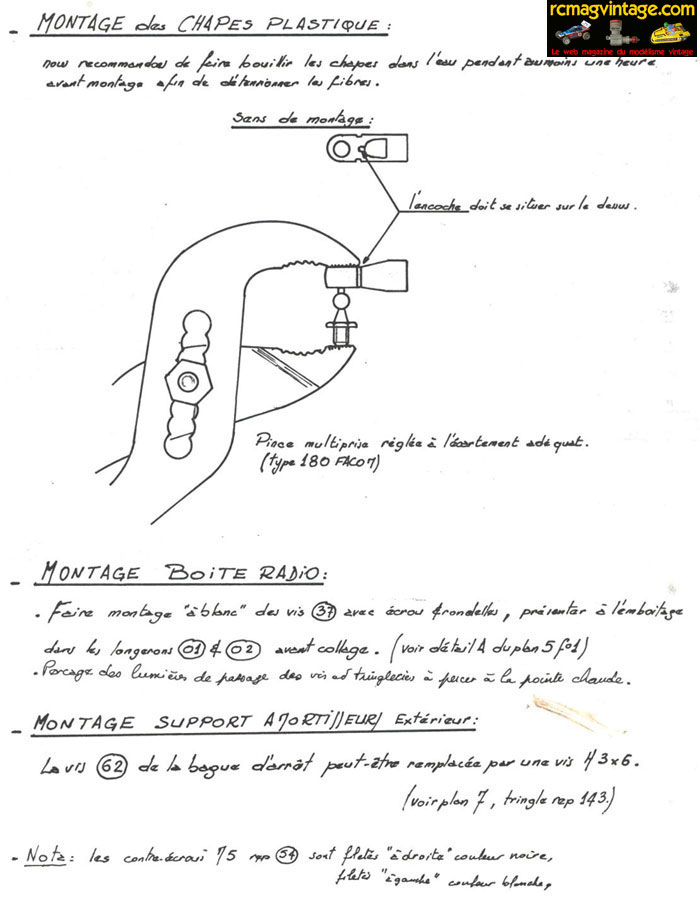 rcmagvintage.com
Le web magazine du modélisme vintage
- MONTAGE des CHAPES PLASTIQUE :
nous recommandons de faire bouillir les chapes dans l'eau pendant au moins une heure
avant montage afin de détensionner les fibres.
Sens de montage :
l'encoche doit se situer sur le dessus.
Pince multiprise réglée à l'écartement adéquat.
(type 180 FACOM)
- MONTAGE BOITE RADIO :
. Faire montage "à blanc" des vis 37 avec écrou & rondelles, présenter à l'emboitage
dans les longerons 01 & 02 avant collage. (voir détail A du plan 5 f01)
. Percage des lumières de passage des vis et tringleries à percer à la pointe chaude.
- MONTAGE SUPPORT AMORTISSEURS Extérieur :
La vis 62 de la bague d'arrêt peut-être remplacée par une vis M3x6.
(voir plan 7, tringle rep 143.)
- Nota : les contre-écrous M5 rep 54 sont filetés "à droite" couleur noire,
filetés "à gauche" couleur blanche,